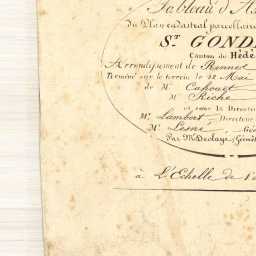 Tableau d'As
du Plan cadastral parcellaire
ST. GOND
Canton de Hédé
Arrondissement de Rennes
Terminé sur le terrain le 22 Mai
de Mr Cahouet
Mr Riche
et sous la Directi
Mr Lambert, Directeur
Mr Lesné, Gé
Par Mr Géomèt
à L'Echelle de 1 à